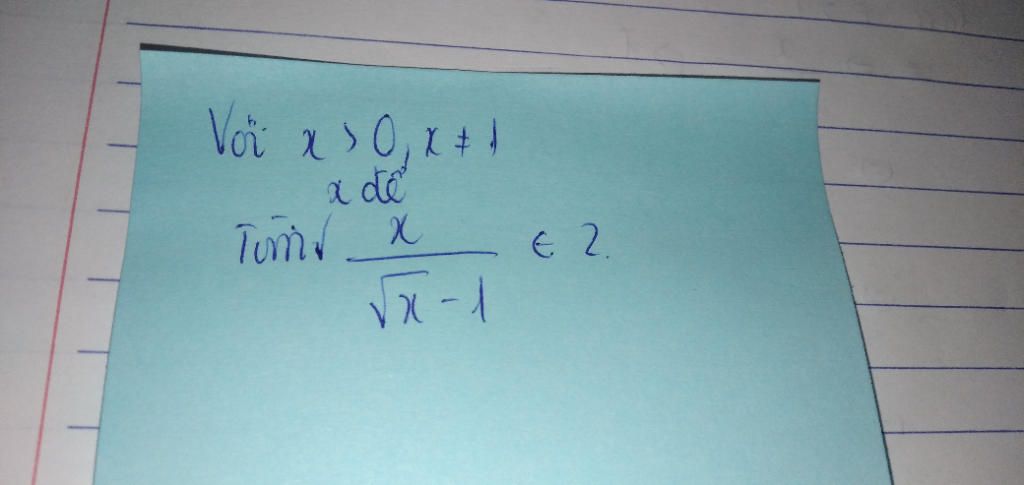 Với x > 0, x ≠ 1
x để
Tìm √ x / (√x - 1) ∈ Z.